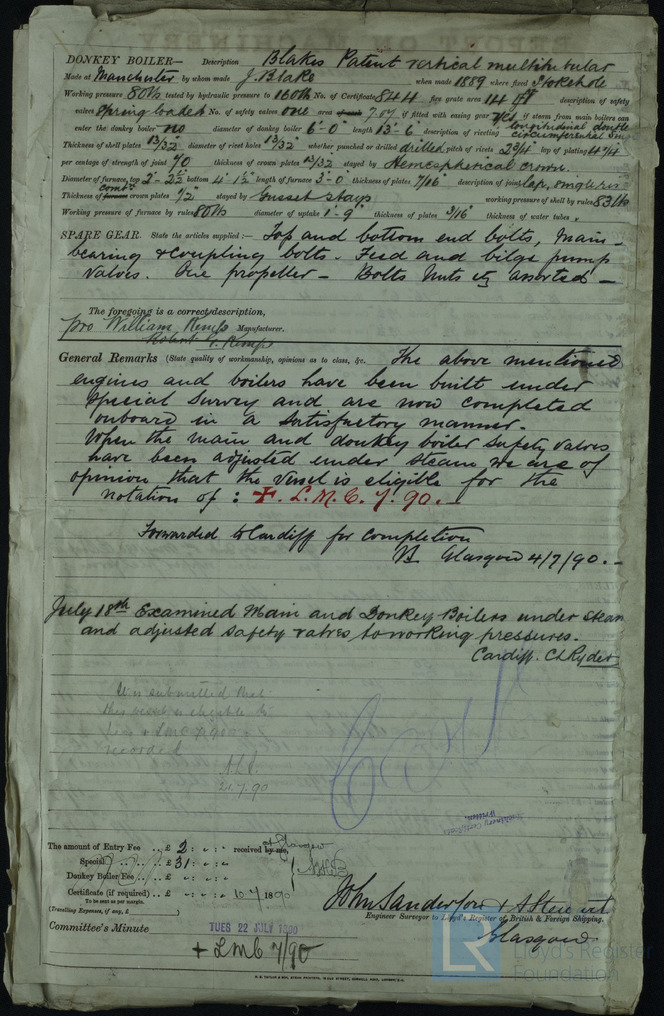 DONKEY BOILER— Description Blakes Patent vertical multitubular
Made at Manchester by whom made J. Blake when made 1889 where fixed Stokehole
Working pressure 80lbs tested by hydraulic pressure to 160lbs No. of Certificate 844 fire grate area 14 ft description of safety
valves Spring loaded No. of safety valves one area 7.07 if fitted with easing gear yes if steam from main boilers can
enter the donkey boiler no diameter of donkey boiler 6'-0" length 13'-6" description of riveting longitudinal double circumferential
Thickness of shell plates 13/32" diameter of rivet holes 13/32" whether punched or drilled drilled pitch of rivets 2 3/4" lap of plating 4 1/4
per centage of strength of joint 70 thickness of crown plates 13/32 stayed by Hemispherical crown.
Diameter of furnace, top 2'-2 1/2 bottom 4' 1 1/2" length of furnace 3'-0" thickness of plates 7/16" description of joint lap, single riv
Thickness of comb. crown plates 1/2" stayed by Gusset stays working pressure of shell by rules 83 lbs
Working pressure of furnace by rules 80lbs diameter of uptake 1'-9" thickness of plates 3/16" thickness of water tubes .
SPARE GEAR. State the articles supplied:— Top and bottom end bolts, Main-
bearing & coupling bolts. Feed and bilge pump
valves. One propeller — Bolts Nuts etc assorted —
The foregoing is a correct description,
pro William Kemp Manufacturer.
Robert G. Kemp
General Remarks (State quality of workmanship, opinions as to class, &c. The above mentioned
engines and boilers have been built under
Special Survey and are now completed
onboard in a satisfactory manner.
When the main and donkey boiler safety valves
have been adjusted under steam we are of
opinion that the vessel is eligible for the
notation of: + L.M.C. 7. 90.
Forwarded to Cardiff for completion
Glasgow 4/7/90.-
July 18th Examined Main and Donkey Boilers under steam
and adjusted safety valves to working pressures.
Cardiff. C L Ryder
It is submitted that
this vessel is eligible to
have + LMC 7.90
recorded
21.7.90
Machinery Certificate
Written.
The amount of Entry Fee .. £ 2 : " : " received by me,
at Glasgow
Special .. £ 31 : " : "
Donkey Boiler Fee .. £ : " : "
Certificate (if required) .. £ " : " : " 10.7 1890
To be sent as per margin.
(Travelling Expenses, if any, £
John Sanderson & A Stewart
Engineer Surveyor to Lloyd's Register of British & Foreign Shipping.
Glasgow.
Committee's Minute
TUES 22 JULY 1890
+ LMC 7/90
LR
Lloyd's Register
Foundation